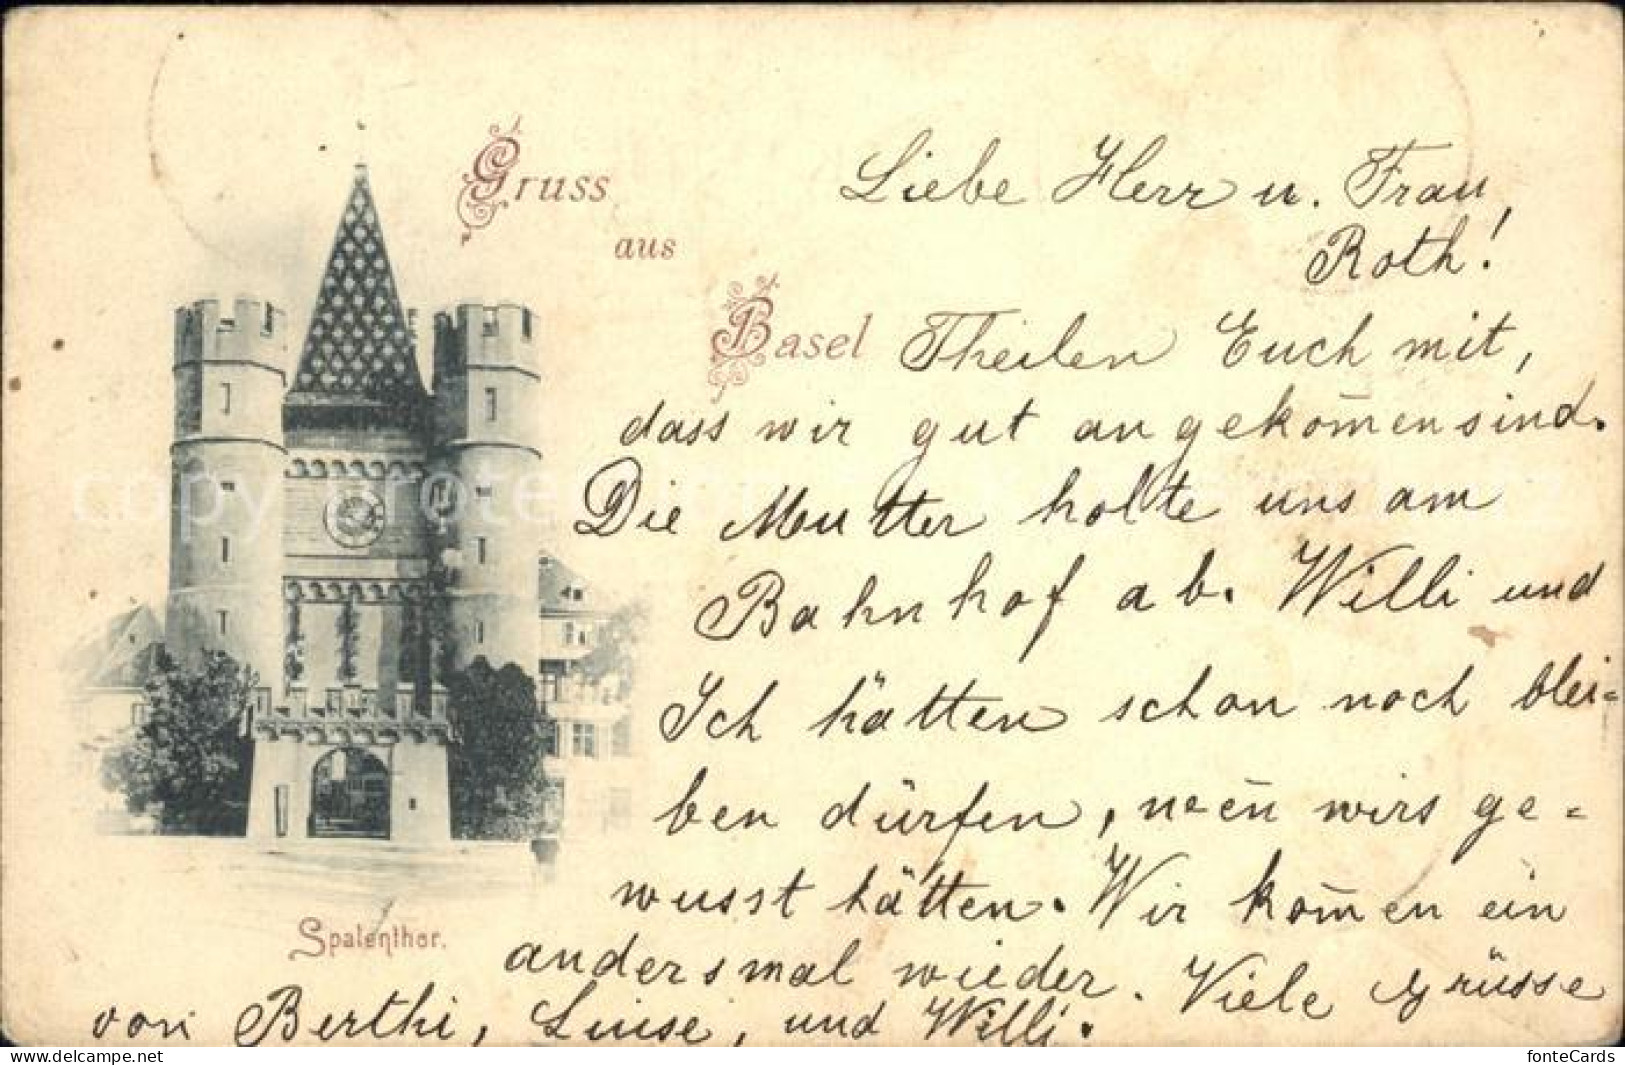 Gruss
aus
Basel
Spalenthor.
Liebe Herr u. Frau,
Roth!
Theilen Euch mit,
dass wir gut angekom̄en sind.
Die Mutter holte uns am
Bahnhof ab. Willi und
Ich hätten schon noch blei=
ben dürfen, wen̄ wirs ge=
wusst hätten. Wir kom̄en ein
andersmal wieder. Viele Grüsse
von Berthi, Luise, und Willi.
fonteCards
https://www.delcampe.net